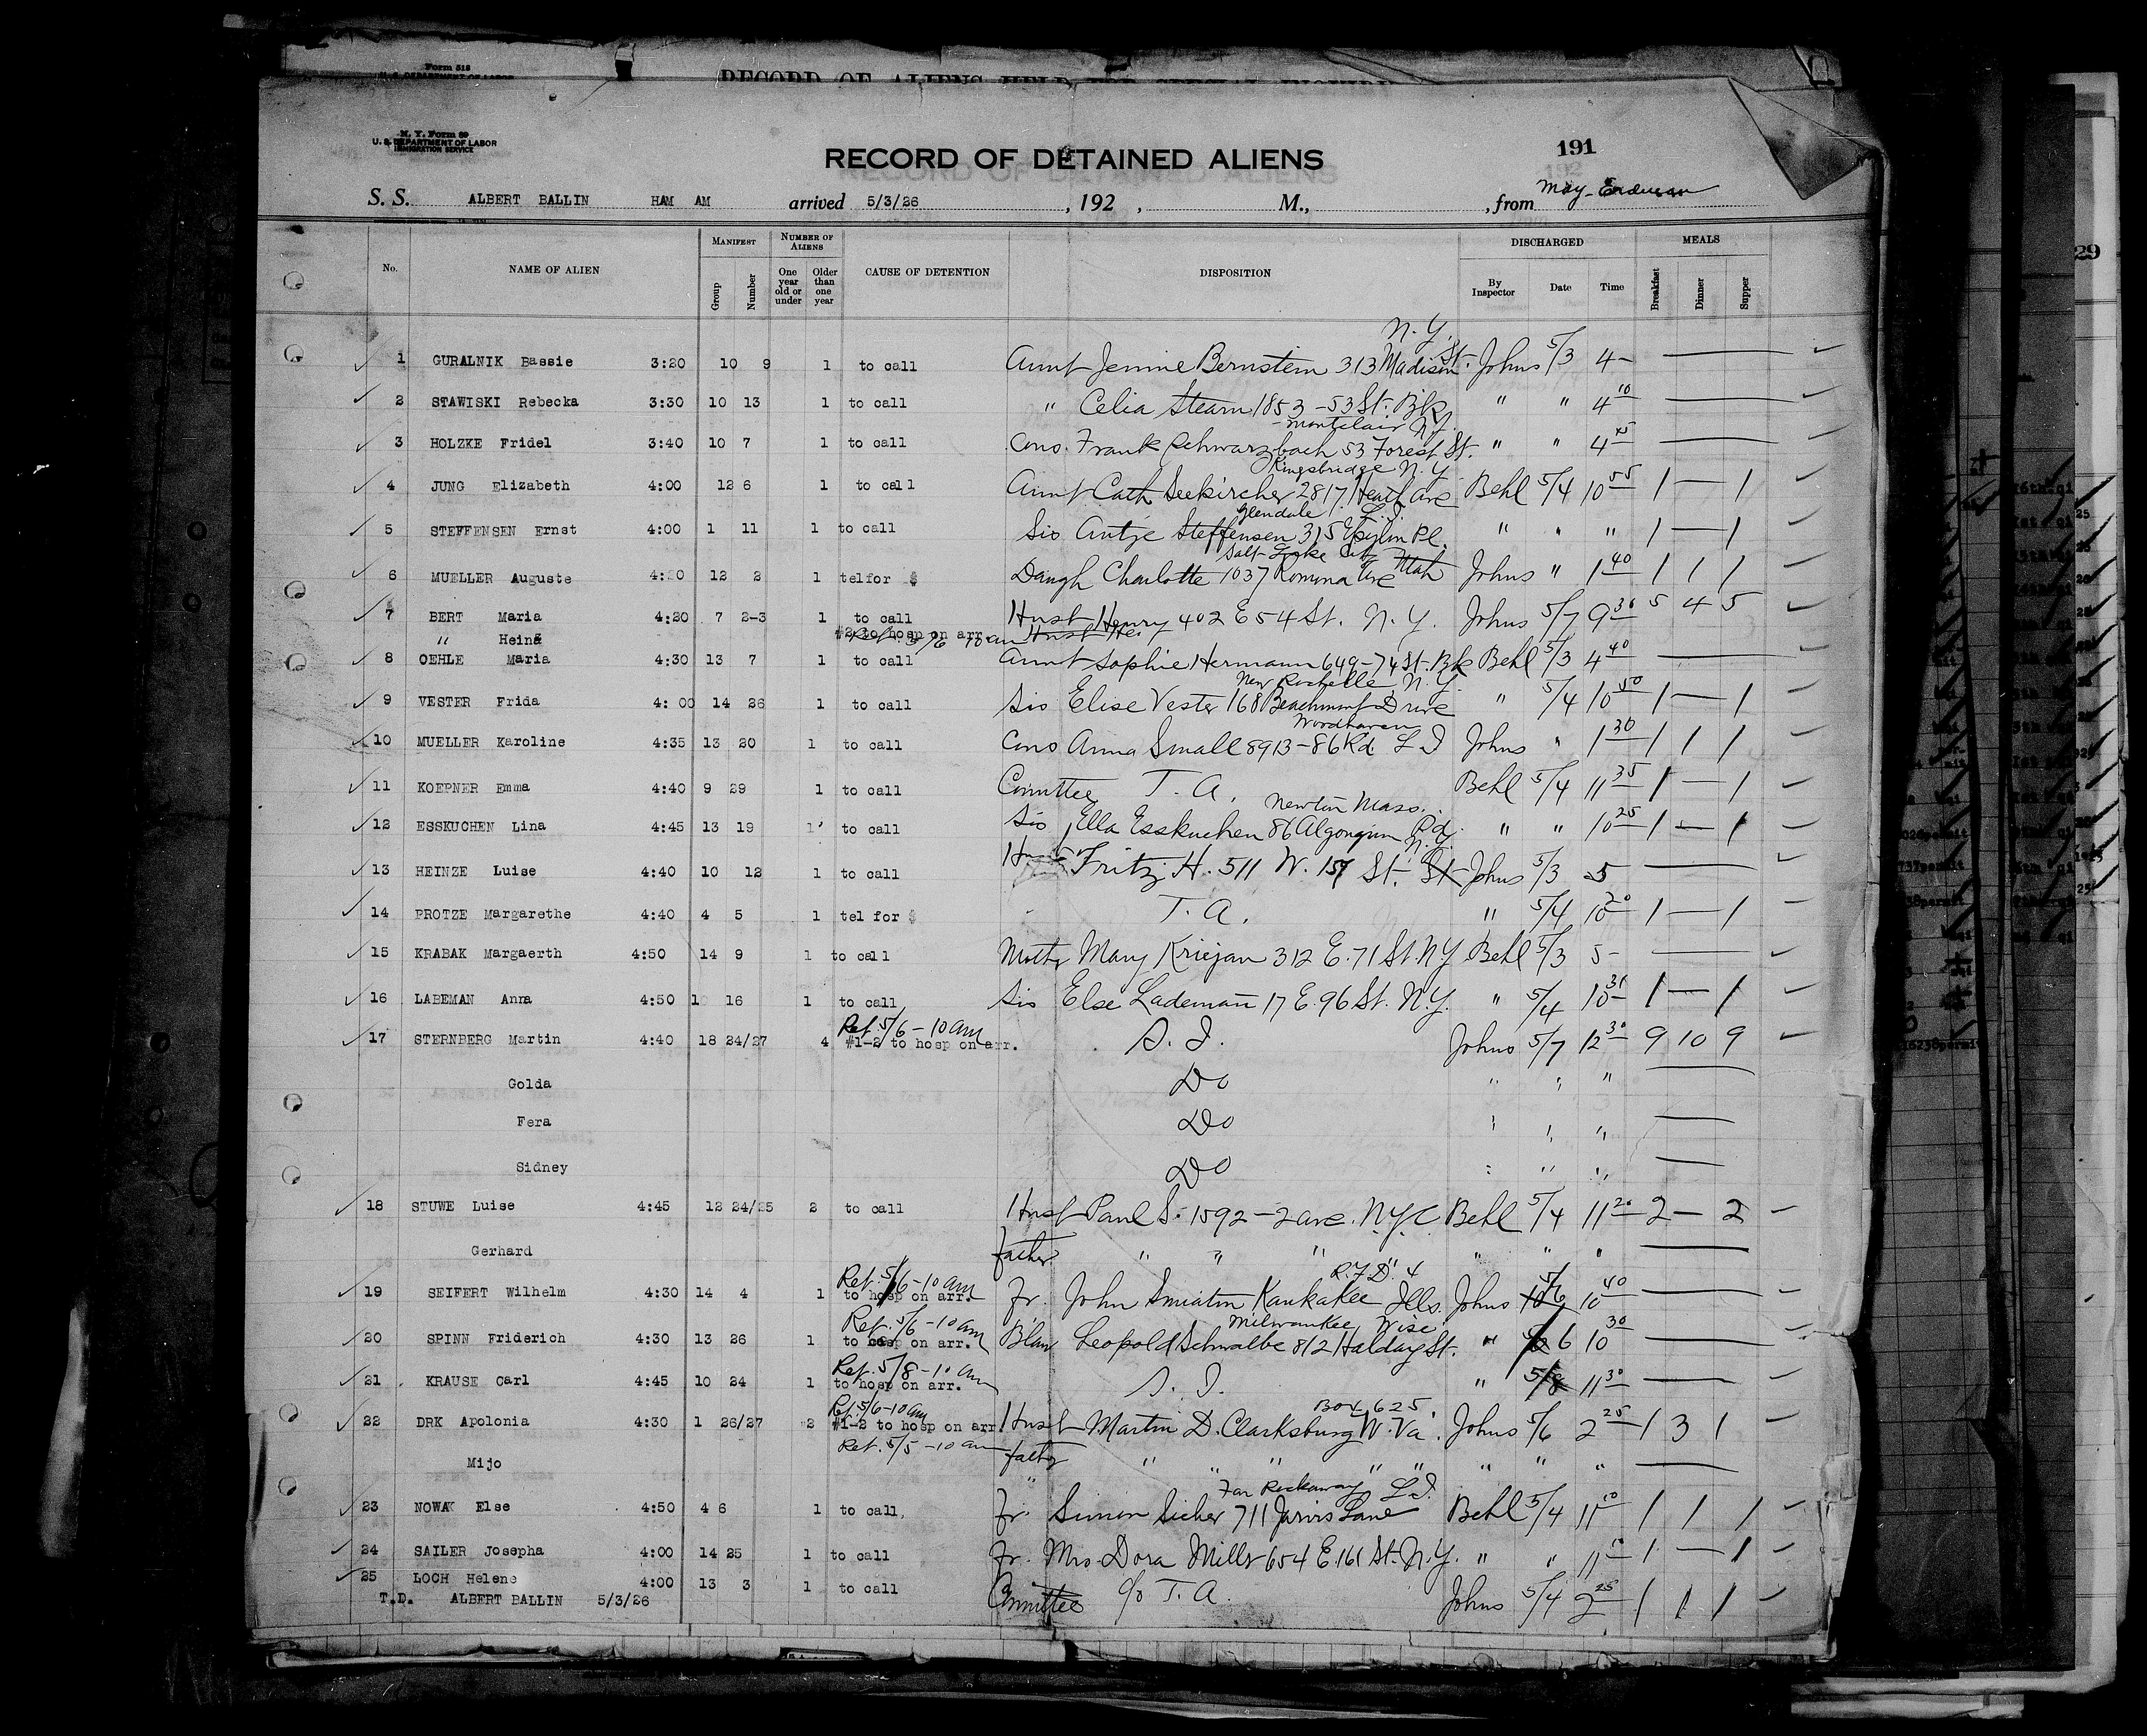 Form 518
U. S. DEPARTMENT OF LABOR
RECORD OF ALIENS HELD FOR SPECIAL INQUIRY
N. Y. Form 89
U. S. DEPARTMENT OF LABOR
IMMIGRATION SERVICE
191
RECORD OF DETAINED ALIENS
S. S. ALBERT BALLIN HAM AM arrived 5/3/26, 192 , M., from May
No. NAME OF ALIEN MANIFEST Group Number NUMBER OF ALIENS One year old or under Older than one year CAUSE OF DETENTION DISPOSITION DISCHARGED By Inspector Date Time MEALS Breakfast Dinner Supper
N.Y.
1 GURALNIK Bassie 3:20 10 9 1 to call Aunt Jennie Bernstein 313 Madison St. Johns 5/3 4 —
2 STAWISKI Rebecka 3:30 10 13 1 to call " Celia Stearn 1853 - 53 St. Bk " " 4 10 —
Montclair N.J.
3 HOLZKE Fridel 3:40 10 7 1 to call Cous. Frank Schwarzbach 53 Forest St. " " 4 45 —
Kingsbridge N.Y.
4 JUNG Elizabeth 4:00 12 6 1 to call Aunt Cath Seekircher 2817 Heath Ave Behl 5/4 10 55 1 — 1
Glendale L.I.
5 STEFFENSEN Ernst 4:00 1 11 1 to call Sis Antje Steffensen 315 Epsilon Pl. " " " 1 — 1
Salt Lake City Utah
6 MUELLER Auguste 4:20 12 2 1 tel for $ Daugh Charlotte 1037 Romona Ave Johns " 1 40 1 1 1
7 BERT Maria 4:20 7 2-3 1 to call Husb Henry 402 E 54 St. N.Y. Johns 5/7 9 30 5 4 5
" Heinz #2 to hosp on arr.
8 OEHLE Maria 4:30 13 7 1 to call Aunt Sophie Hermann 649-74 St. Bk Behl 5/3 4 40 —
New Rochelle, N.Y.
9 VESTER Frida 4:00 14 26 1 to call Sis Elise Vester 168 Beachmont Drive " 5/4 10 50 1 — 1
Woodhaven
10 MUELLER Karoline 4:35 13 20 1 to call Cous Anna Small 8913-86 Rd. L I Johns " 1 30 1 1 1
11 KOEPNER Emma 4:40 9 29 1 to call Committee T. A. Behl 5/4 11 35 1 — 1
Newton Mass.
12 ESSKUCHEN Lina 4:45 13 19 1 to call Sis Ella Esskuchen 86 Algonquin Rd. " " 10 25 1 — 1
N.Y.
13 HEINZE Luise 4:40 10 12 1 to call Husb Fritz H. 511 W. 157 St. Johns 5/3 5 —
14 PROTZE Margarethe 4:40 4 5 1 tel for $ T. A. " 5/4 10 20 1 — 1
15 KRABAK Margaerth 4:50 14 9 1 to call Mother Mary Kriejan 312 E. 71 St. N.Y. Behl 5/3 5 — —
16 LABEMAN Anna 4:50 10 16 1 to call Sis Else Lademann 17 E. 96 St. N.Y. " 5/4 10 31 1 — 1
Ret. 5/6 - 10 am
17 STERNBERG Martin 4:40 18 24/27 4 #1-2 to hosp on arr. S. I. Johns 5/7 12 30 9 10 9
Golda Do " " " —
Fera Do " " " —
Sidney Do " " " —
18 STUWE Luise 4:45 12 24/25 2 to call Husb Paul S. 1592 - 2 ave. N.Y.C Behl 5/4 11 20 2 — 2
Gerhard father " " " " " " —
Ret. 5/6 - 10 am R.F.D. 4
19 SEIFERT Wilhelm 4:30 14 4 1 to hosp on arr. Fr. John Smiatin Kankakee Ills. Johns 5/6 10 40 —
Ret. 5/6 - 10 am Milwaukee, Wisc
20 SPINN Friderich 4:30 13 26 1 to hosp on arr. Leopold Schwalbe 812 Halday St. " 6 10 30 —
Ret. 5/8 - 10 am
21 KRAUSE Carl 4:45 10 24 1 to hosp on arr. S. I. " 5/8 11 30 —
Ret. 5/6 - 10 am Box 625
22 DRK Apolonia 4:30 1 26/27 2 #1-2 to hosp on arr. Husb Martin D. Clarksburg W. Va. Johns 5/6 2 25 1 3 1
Ret. 5/5 - 10 am
Mijo father " " " " " " " " —
Far Rockaway L.I.
23 NOWAK Else 4:50 4 6 1 to call, Fr. Simon Sicher 711 Jarvis Lane Behl 5/4 11 10 1 1 1
24 SAILER Josepha 4:00 14 25 1 to call Fr. Mrs. Dora Miller 654 E. 161 St. N.Y. " " 11 10 1 — 1
25 LOCH Helene 4:00 13 3 1 to call Committee c/o T. A. Johns 5/4 2 25 1 1 1
T.D. ALBERT BALLIN 5/3/26
29